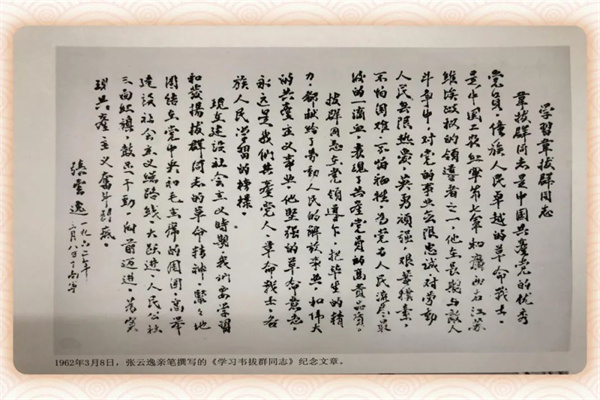 学習韋拔群同志
韋拔群同志是中国共產党的优秀
党員,僮族人民卓越的革命战士,
是中国工农紅軍第七軍和广西右江苏
維埃政权的領導者之一,他在長期与敌人
斗争中,对党的事业無限忠誠,对劳動
人民無限热爱,英勇頑强,艰苦樸素,
不怕困难,不怕牺牲,为党为人民流尽最
後的一滴血,表現了共產党員的高貴品質。
拔群同志在党領導下,把畢生的精
力,都献给了劳動人民的解放事业,和伟大
的共產主义事业,他坚强的革命意志,
永远是我们共產党人、革命战士,各
族人民学習的榜樣。
現在建設社会主义時期,我们要学習
和發揚拔群同志的革命精神,緊緊地
团结在党中央和毛主席的周圍,高举
建設社会主义总路线、大跃進、人民公社
三面紅旗,鼓足干勁,向前迈進,为实
現共產主义奮斗到底。
張雲逸一九六二年
三月八日于南宁
1962年3月8日,张云逸亲笔撰写的《学习韦拔群同志》纪念文章。